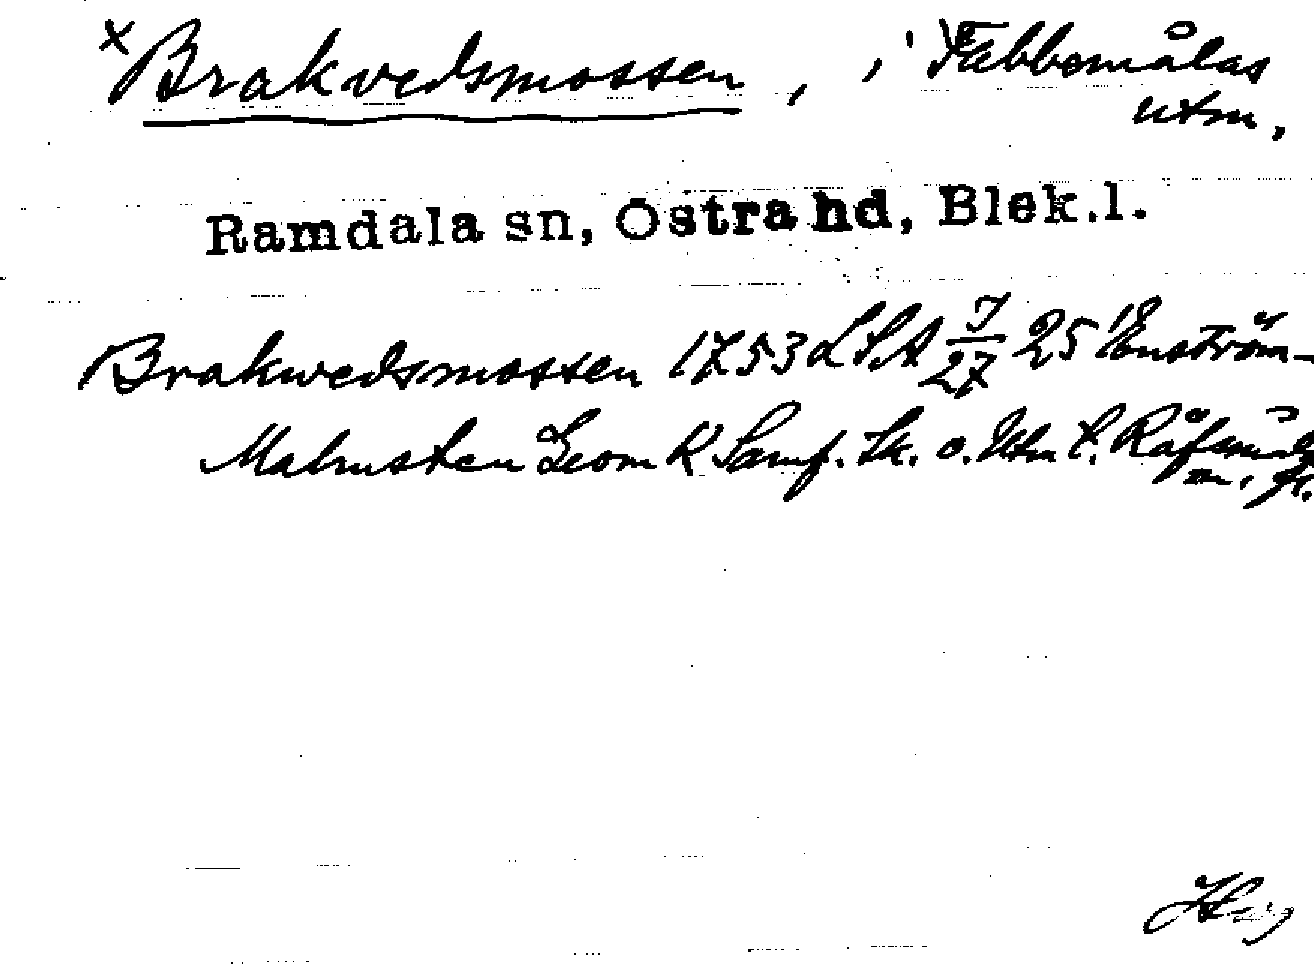 × Brakvedsmossen, i Fäbbemålas
utm.
Ramdala sn, Östra hd, Blek.l.
Brakwedsmossen 1753 LSA 7/27 25 Enström-
Malmsten Geom K Samf. Sk. o. Utm t.